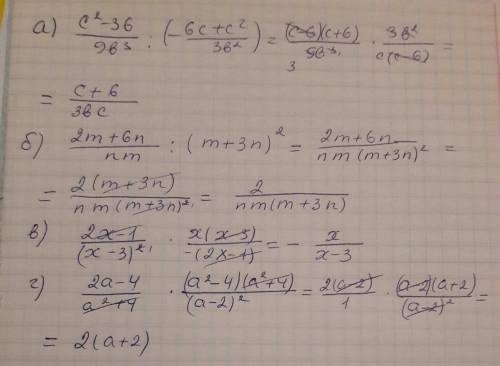 а) (c²-36)/(9b³) : (-(6c+c²)/(3b²)) = ((c-6)(c+6))/(9b³) · (3b²)/(c(c-6)) =
= (c+6)/(3bc)
б) (2m+6n)/(nm) : (m+3n)² = (2m+6n)/(nm(m+3n)²) =
= (2(m+3n))/(nm(m+3n)²) = 2/(nm(m+3n))
в) (2x-1)/((x-3)²) · (x(x-3))/(-(2x-1)) = - x/(x-3)
г) (2a-4)/(a²+4) · ((a²-4)(a²+4))/((a-2)²) = (2(a-2))/1 · ((a-2)(a+2))/((a-2)²) =
= 2(a+2)